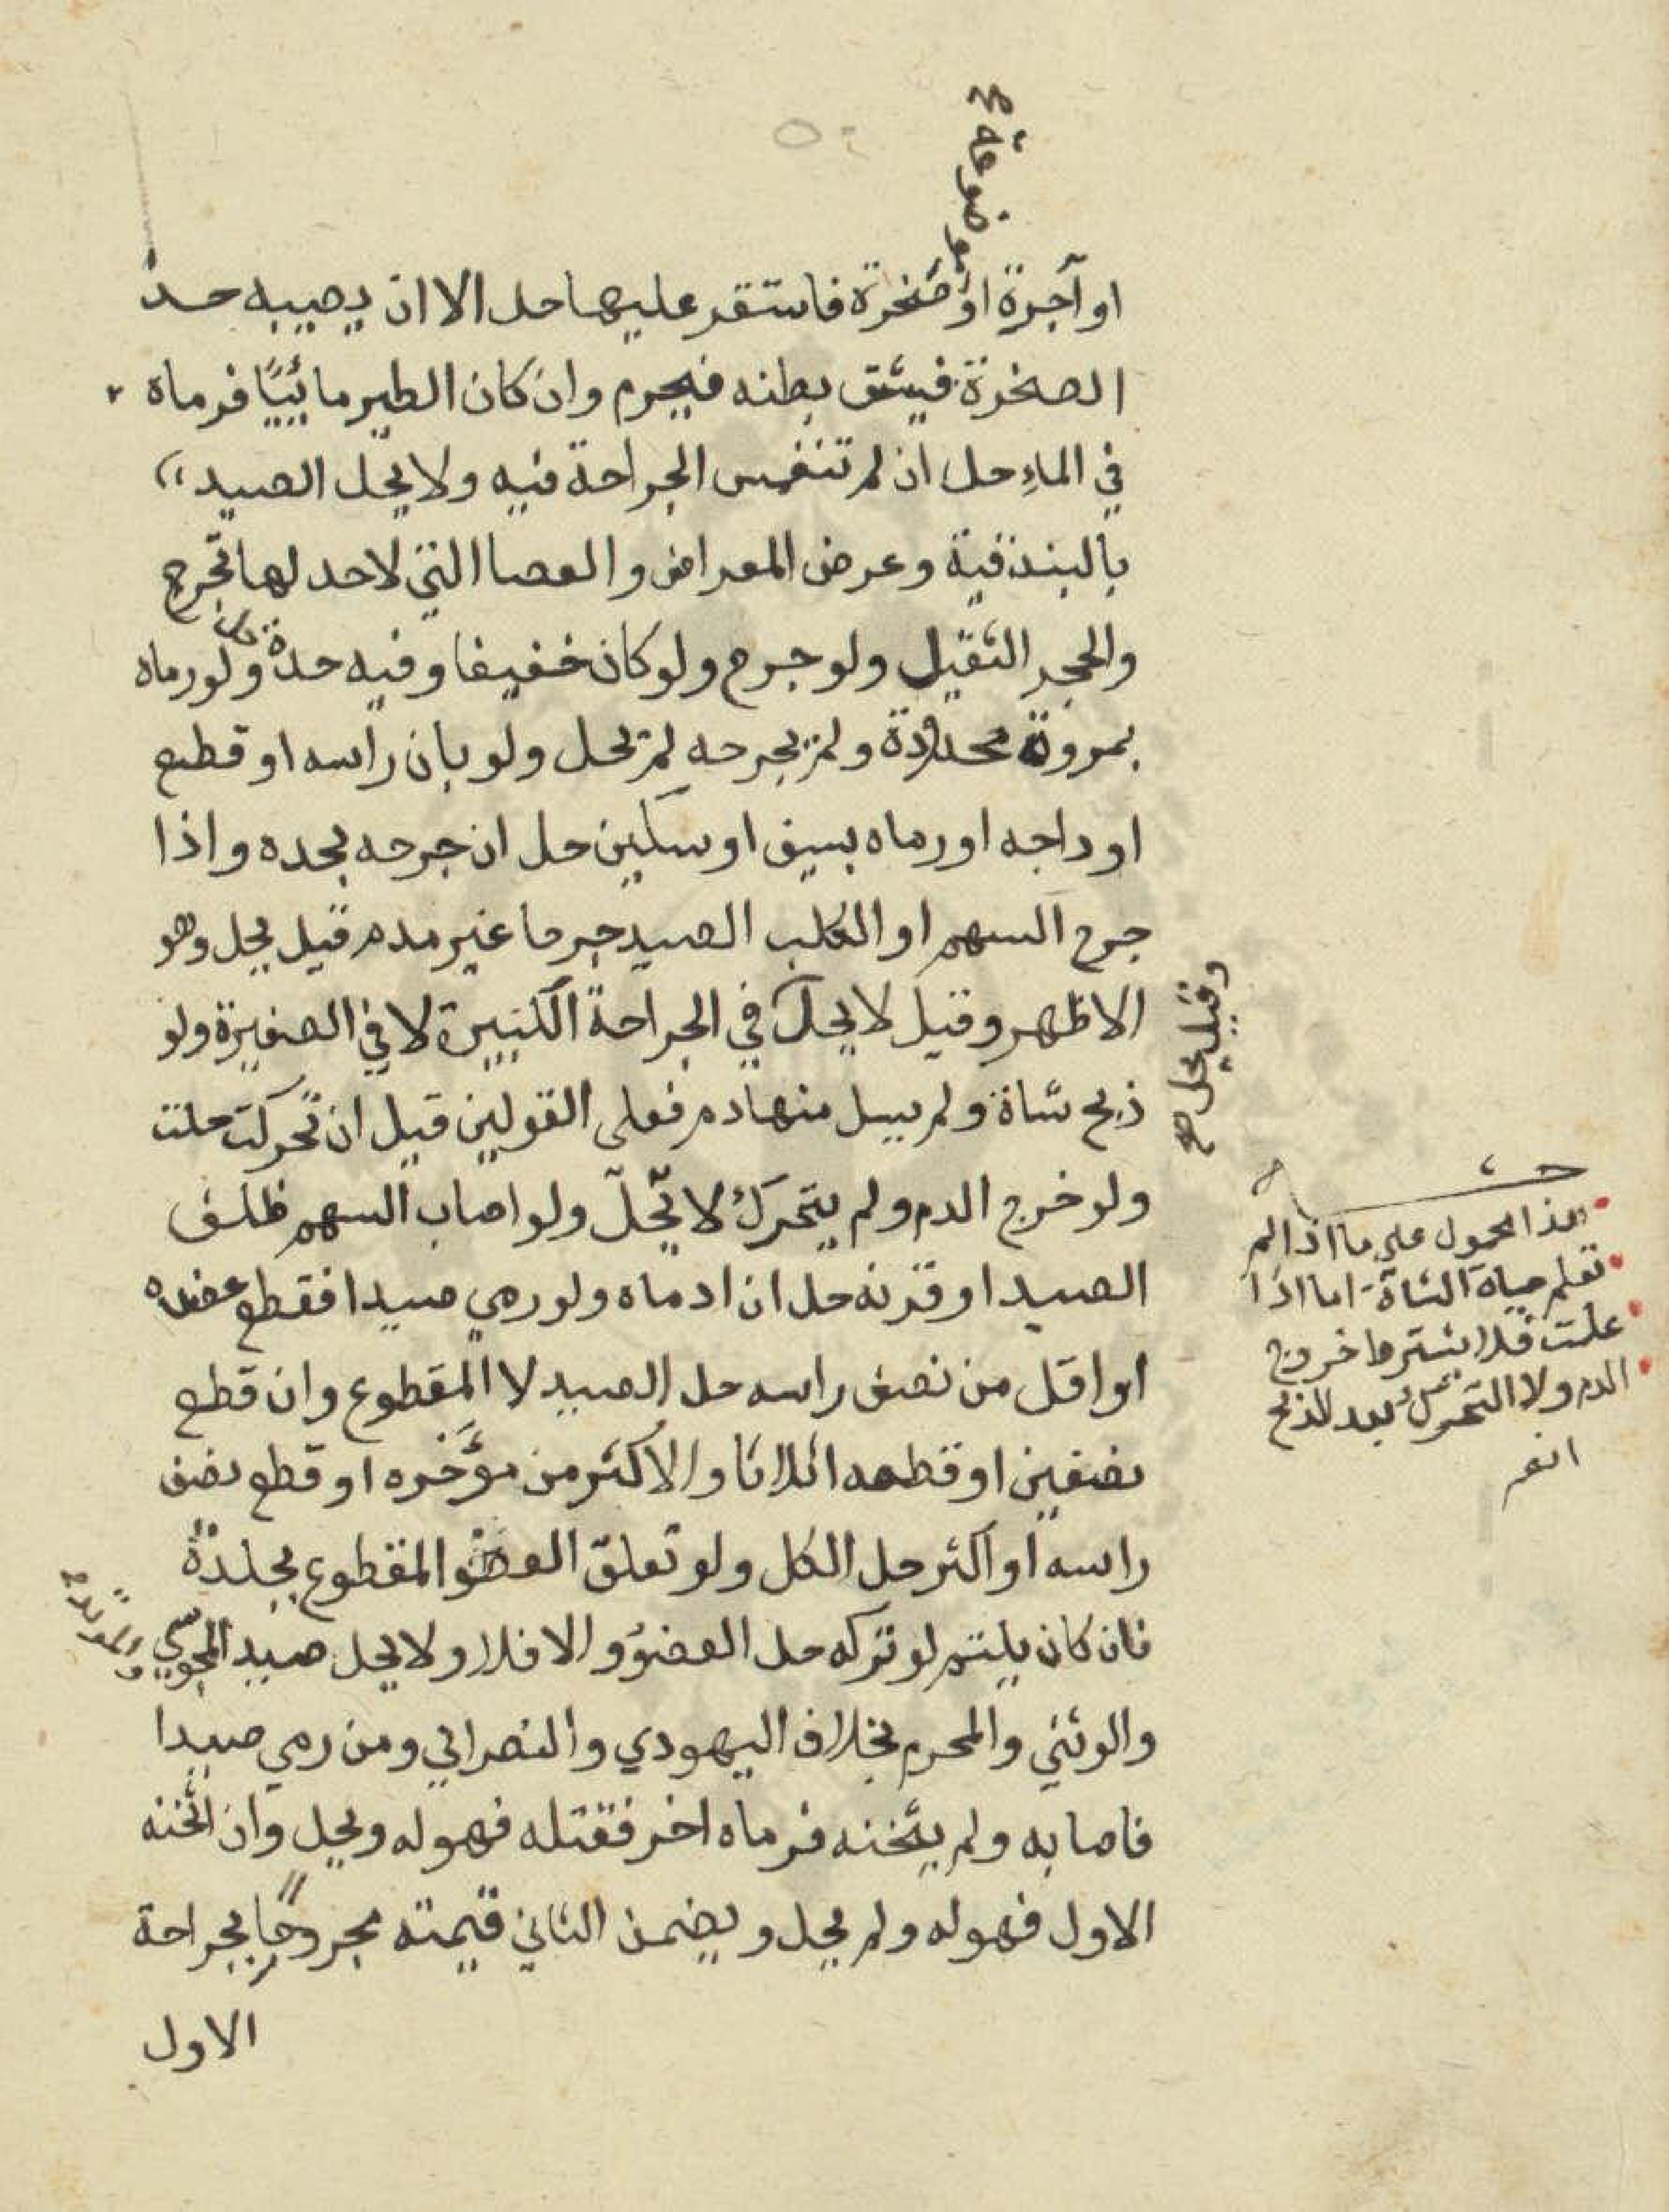 موضوعة صح
او آجرة او صخرة فاستقر عليها حل الا ان يصيبه حد
الصخرة فيشق بطنه فيحرم وان كان الطير مائيًا فرماه
في الماءِ حل ان لم تنغمس الجراحة فيه ولا يحل الصيد
بالبندقية وعرض المعراض والعصا التي لا حد لها تجرح
والحجر الثقيل ولو جرح ولو كان خفيفا وفيه حدة حل ولو رماه
بمروة محددة ولم يجرحه لم يحل ولو بان راسه او قطع
اوداجه او رماه بسيف او سكين حل ان جرحه بحده واذا
جرح السهم او الكلب الصيد جرحا غير مدم قيل يحل وهو
الاظهر وقيل لا يحل في الجراحة الكبيرة لا في الصغيرة ولو
وقيل يحل صح
ذبح شاة ولم يسل منها دم فعلى القولين قيل ان تحركت حلت
ولو خرج الدم ولم يتحرك لا تحل ولو اصاب السهم ظلف
الصيد او قرنه حل ان ادماه ولو رمي صيدا فقطع عضده
او اقل من نصف راسه حل الصيد لا المقطوع وان قطع
نصفين او قطعه اثلاثا والاكثر من مؤَخره او قطع نصف
راسه او اكثر حل الكل ولو تعلق العضو المقطوع بجلدة
فان كان يلتئم لو تركه حل العضو والا فلا ولا يحل صيد المجوسي
والمرتد صح
والوثني والمحرم بخلاف اليهودي والنصراني ومن رمي صيدا
فاصابه ولم يثخنه فرماه اخر فقتله فهو له ويحل وان اثخنه
الاول فهو له ولم يحل ويضمن الثاني قيمته مجروحًا بجراحة
الاول
هذا محمول على ما اذا لم
تعلم حياة الشاة اما اذا
علمت فلا يشترط خروج
الدم ولا التحرك بعد الذبح